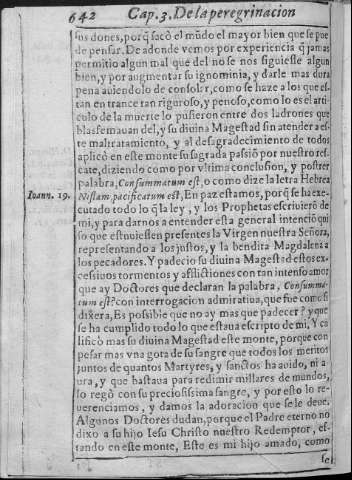 642 Cap. 3. De la peregrinacion
sus dones, porq̃ sacò el mũdo el mayor bien que se pue
de pensar. De adonde vemos por experiencia q̃ jamas
permitio algun mal que del no se nos siguiesse algun
bien, y por augmentar su ignominia, y darle mas dura
pena auiendolo de consolar, como se haze a los que es-
tan en trance tan riguroso, y penoso, como lo es el arti-
culo de la muerte lo pusieron entre dos ladrones que
blasfemauan del, y su diuina Magestad sin atender a es-
te maltratamiento, y al desagradecimiento de todos
aplicó en este monte su sagrada passiõ por nuestro res-
cate, diziendo como por vltima conclusion, y postrer
palabra, Consummatum est, o como dize la letra Hebrea
Ioann. 19.
Nislam pacificatum est, En paz estamos, porq̃ se ha exe-
cutado todo lo q̃ la ley, y los Prophetas escriuierõ de
mi, y para darnos a entender esta general intenciõ qui
so que estuuiessen presentes la Virgen nuestra Señora,
representando a los justos, y la bendita Magdalena a
los pecadores. Y padecio su diuina Magestad estos ex-
cessiuos tormentos y aflictiones con tan intenso amor
que ay Doctores que declaran la palabra, Consumma-
tum est? con interrogacion admiratiua, que fue como si
dixera, Es possible que no ay mas que padecer? y que
se ha cumplido todo lo que estaua escripto de mi, Y ca
lificò mas su diuina Magestad este monte, porque con
pesar mas vna gota de su sangre que todos los meritos
juntos de quantos Martyres, y sanctos ha auido, ni a
urà, y que bastaua para redimir millares de mundos,
lo regò con su preciosissima sangre, y por esto lo re-
uerenciamos, y damos la adoracion que se le deue.
Algunos Doctores dudan, porque el Padre eterno no
dixo a su hijo Iesu Christo nuestro Redemptor, es-
tando en este monte, Este es mi hijo amado, como
se